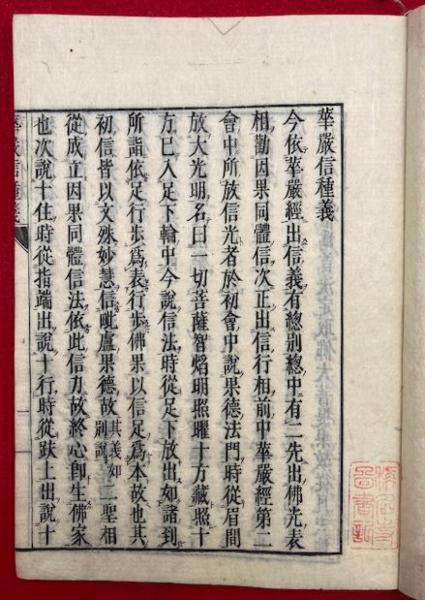 華嚴信種義
今依華嚴經出信義有總別總中有二先出佛光表
相勸因果同體信次正出信行相前中華嚴經第二
會中所放信光者於初會中說果德法門時從眉間
放大光明名曰一切菩薩智焰明照曜十方藏照十
方已入足下輪中今說信法時從足下放出如諸到
所詣依足行步爲表行步佛果以信足爲本故也其
初信皆以文殊妙慧信毗盧果德故其義如別說二聖相
從成立因果同體信法依此信力故終心即生佛家
也次說十住時從指端出說十行時從趺上出說十
華嚴信種義